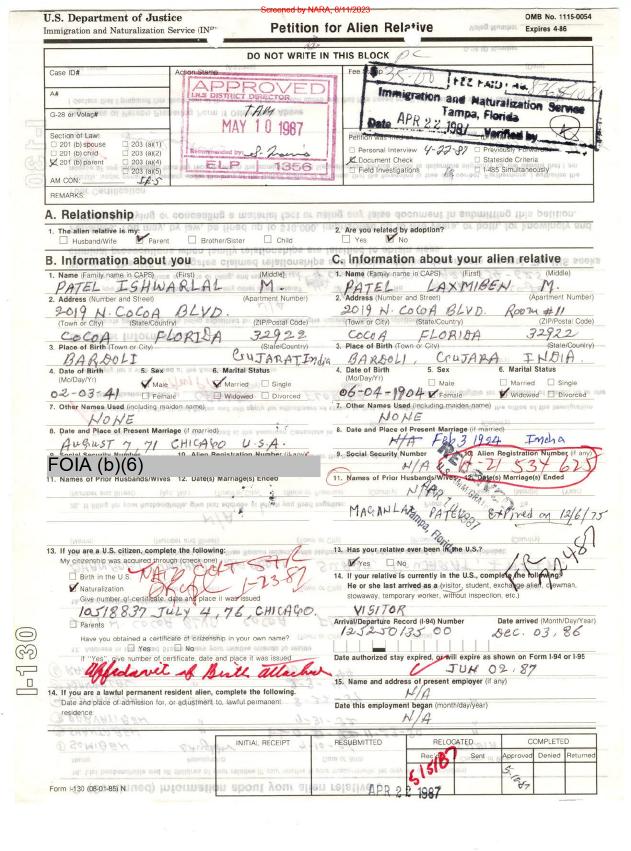 Screened by NARA, 8/11/2023
U.S. Department of Justice
Immigration and Naturalization Service (INS)
Petition for Alien Relative
OMB No. 1115-0054
Expires 4-86
DO NOT WRITE IN THIS BLOCK
Case ID#
Action Stamp
Fee Stamp
A#
G-28 or Volag#
APPROVED
INS DISTRICT DIRECTOR
TAM
MAY 10 1987
Recommended by
ELP 1356
35.00
FEE PAID
Immigration and Naturalization Service
Tampa, Florida
Date APR 22 1987 Verified by
Section of Law:
201 (b) spouse 203 (a)(1)
201 (b) child 203 (a)(2)
201 (b) parent 203 (a)(4)
203 (a)(5)
AM CON: IR-5
Petition was
Personal Interview 4-22-87 Previously
Document Check Stateside Criteria
Field Investigations I-485 Simultaneously
REMARKS:
A. Relationship
1. The alien relative is my:
Husband/Wife Parent Brother/Sister Child
2. Are you related by adoption?
Yes No
B. Information about you
1. Name (Family name in CAPS) (First) (Middle)
PATEL ISHWARLAL M.
2. Address (Number and Street) (Apartment Number)
2019 N. COCOA BLVD.
(Town or City) (State/Country) (ZIP/Postal Code)
COCOA FLORIDA 32922
3. Place of Birth (Town or City) (State/Country)
BARDOLI GUJARAT India
4. Date of Birth 5. Sex 6. Marital Status
(Mo/Day/Yr) Male Married Single
02-03-41 Female Widowed Divorced
7. Other Names Used (including maiden name)
NONE
8. Date and Place of Present Marriage (if married)
AUGUST 7 71 CHICAGO U.S.A.
9. Social Security Number 10. Alien Registration Number (if any)
FOIA (b)(6)
11. Names of Prior Husbands/Wives 12. Date(s) Marriage(s) Ended
13. If you are a U.S. citizen, complete the following:
My citizenship was acquired through (check one)
Birth in the U.S.
Naturalization
1-23-87
Give number of certificate, date and place it was issued
10518837 JULY 4, 76, CHICAGO.
Parents
Have you obtained a certificate of citizenship in your own name?
Yes No
If "Yes", give number of certificate, date and place it was issued
Affidavit of Birth attached
14. If you are a lawful permanent resident alien, complete the following.
Date and place of admission for, or adjustment to, lawful permanent
residence:
C. Information about your alien relative
1. Name (Family name in CAPS) (First) (Middle)
PATEL LAXMIBEN M.
2. Address (Number and Street) (Apartment Number)
2019 N. COCOA BLVD. ROOM #11
(Town or City) (State/Country) (ZIP/Postal Code)
COCOA FLORIDA 32922
3. Place of Birth (Town or City) (State/Country)
BARDOLI, GUJARA INDIA.
4. Date of Birth 5. Sex 6. Marital Status
(Mo/Day/Yr) Male Married Single
06-04-1904 Female Widowed Divorced
7. Other Names Used (including maiden name)
NONE
8. Date and Place of Present Marriage (if married)
N/A Feb 3 1924 India
9. Social Security Number 10. Alien Registration Number (if any)
N/A A-21 534 625
11. Names of Prior Husbands/Wives 12. Date(s) Marriage(s) Ended
N/A
MAGANLAL PATEL Expired on 12/6/75
RECEIVED
Tampa, Florida
13. Has your relative ever been in the U.S.?
Yes No
14. If your relative is currently in the U.S., complete the following:
He or she last arrived as a (visitor, student, exchange alien, crewman,
stowaway, temporary worker, without inspection, etc.)
VISITOR
Arrival/Departure Record (I-94) Number Date arrived (Month/Day/Year)
125250135 00 DEC. 03, 86
Date authorized stay expired, or will expire as shown on Form I-94 or I-95
JUN 02, 87
15. Name and address of present employer (if any)
N/A
Date this employment began (month/day/year)
N/A
I-130
INITIAL RECEIPT RESUBMITTED RELOCATED COMPLETED
Rec'd Sent Approved Denied Returned
5/5/87
APR 22 1987
Form I-130 (08-01-85) N